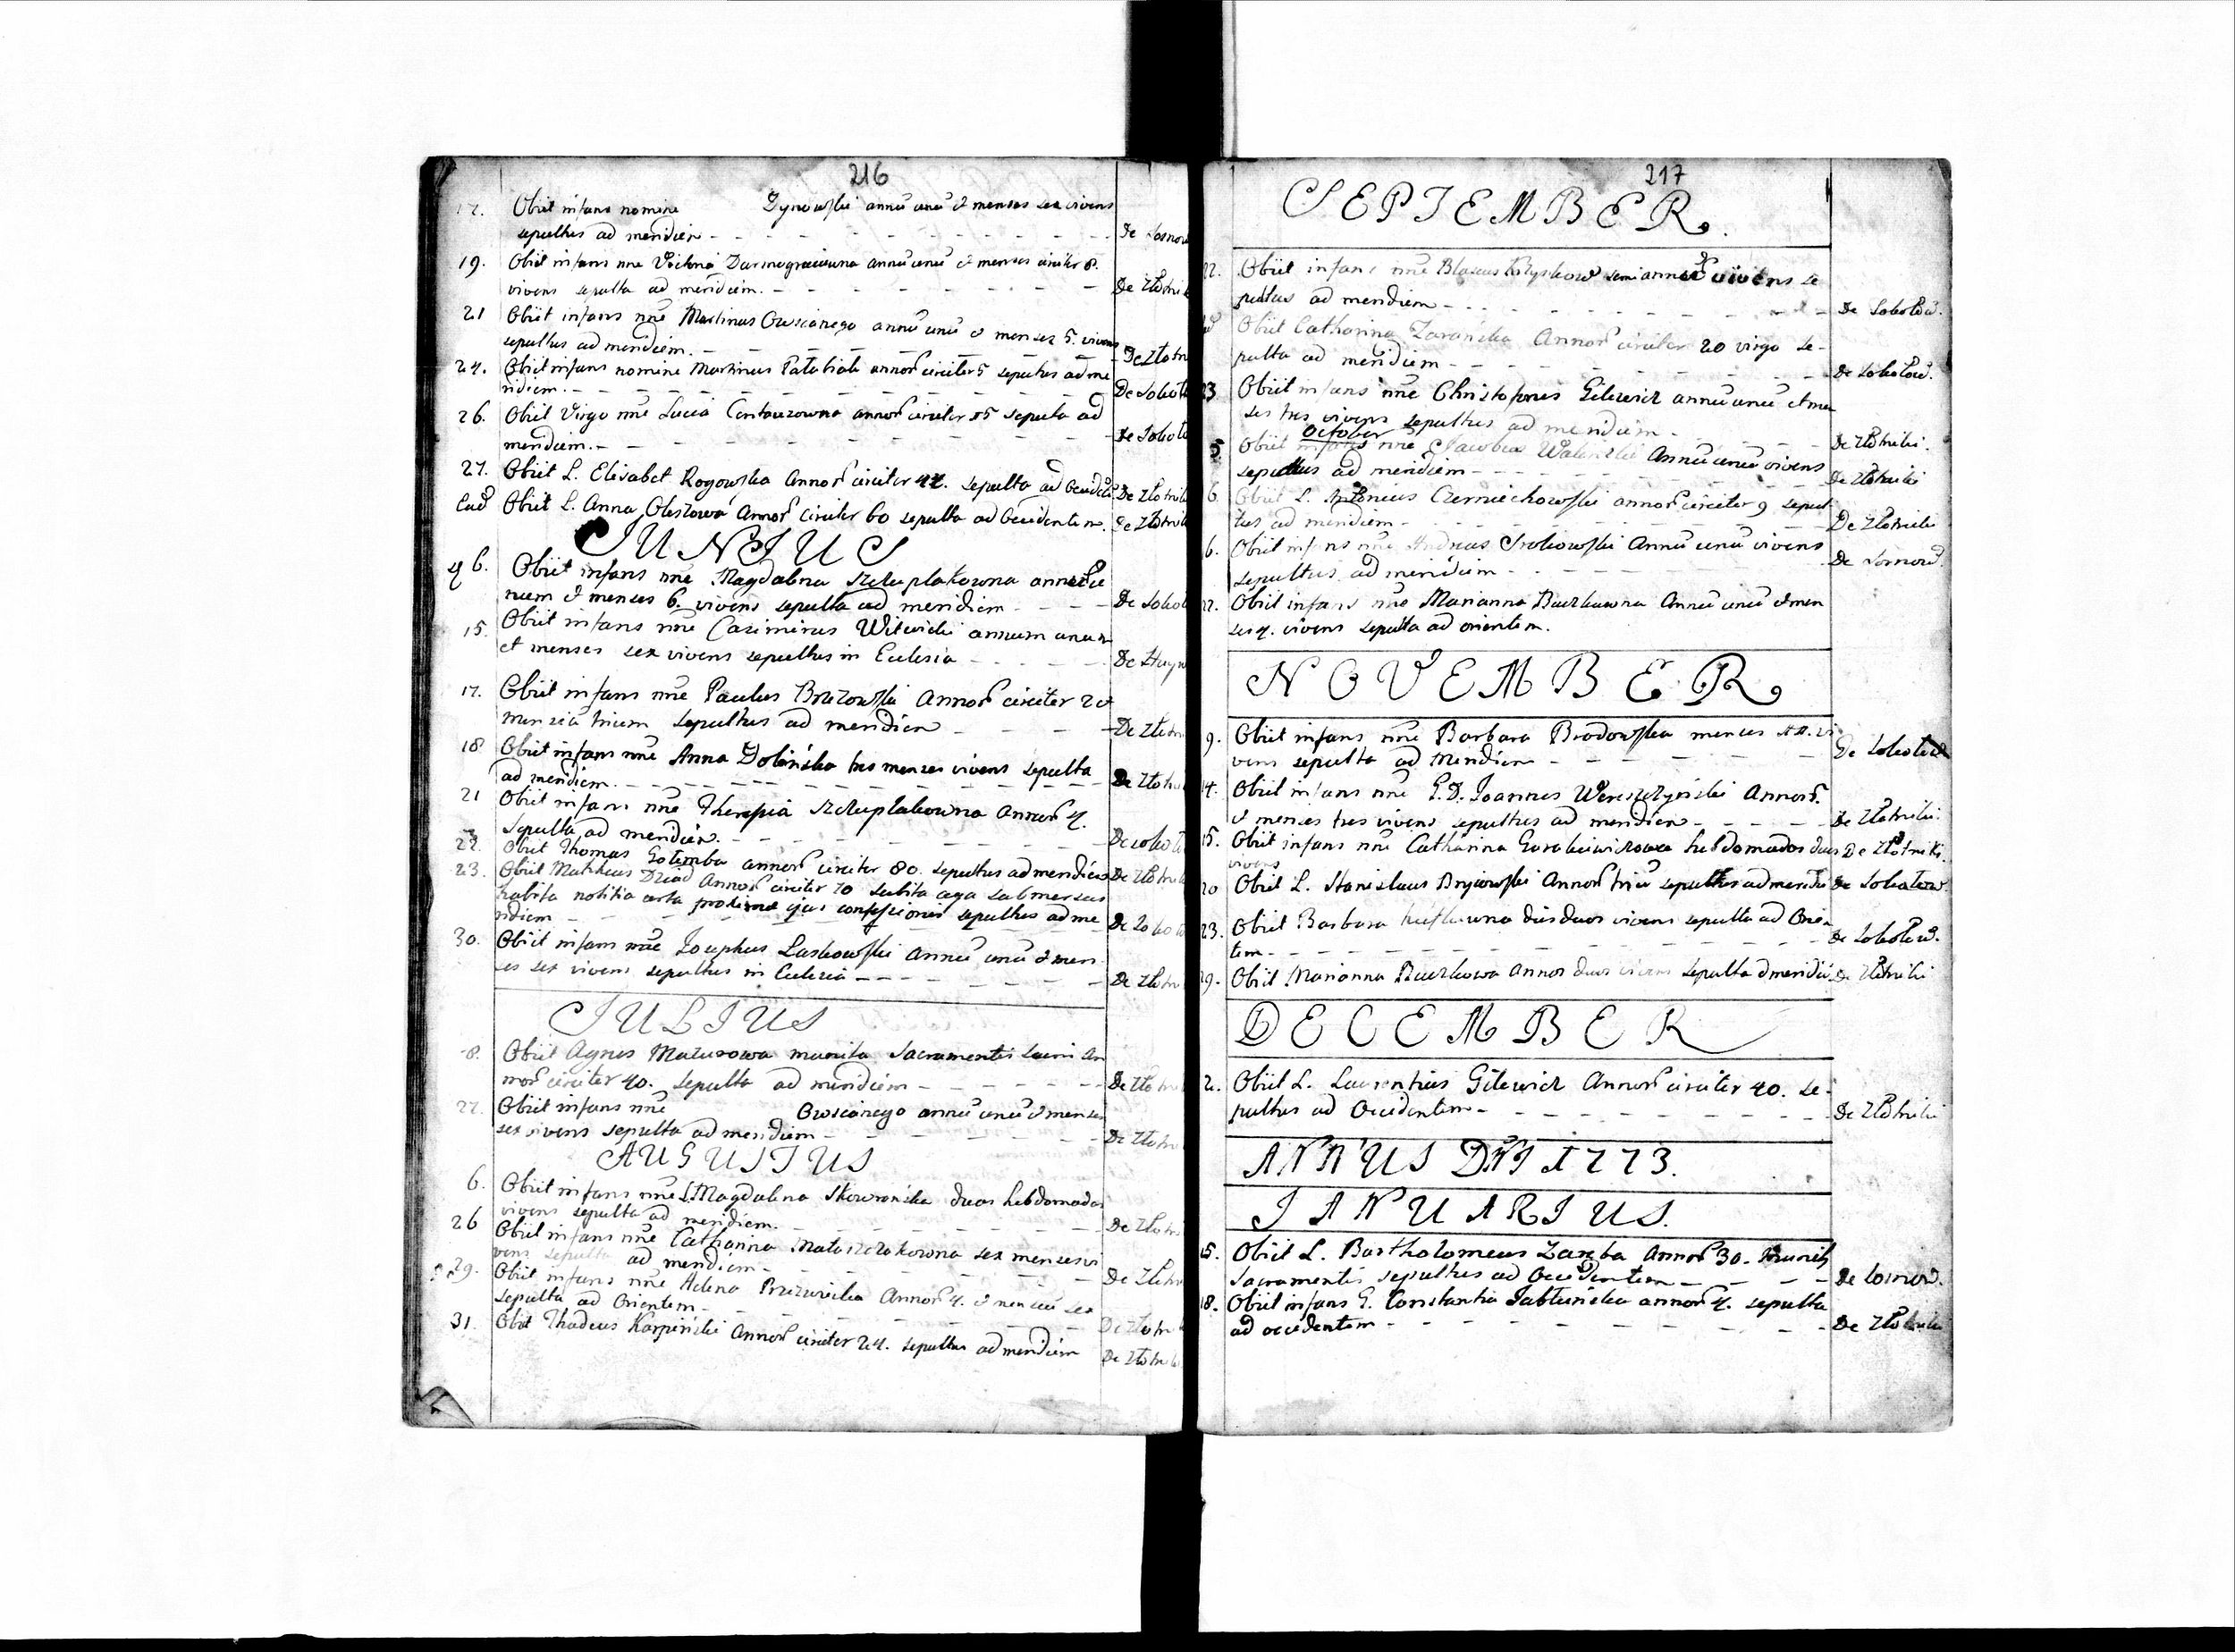 216
17. Obiit infans nomine Dynowski annũ unũ & menses sex vivens
sepultus ad meridiem De Sosnow
19. Obiit infans nne annũ unũ & menses circiter 8.
vivens sepulta ad meridiem. De Złotnik
21 Obiit infans nne Martinus Owsianego annũ unũ & menses 5. vivens
sepultus ad meridiem. De Złotn
24. Obiit infans nomine Martinus annor circiter 5 sepultus ad me
ridiem. De Sokoł
26. Obiit Virgo nne Lucia annor circiter 15 sepulta ad
meridiem. De Sokoł
27. Obiit L. Elisabet Rogowska Annor circiter 42. sepulta ad De Złotnik
Ead Obiit L. Anna Oleszowa Annor circiter 60 sepulta ad Occidentem. De Złotnik
JUNIUS
6. Obiit infans nne Magdalena Szeluplakowna
& menses 6. vivens sepulta ad meridiem De Sokoł
15. Obiit infans nne Casimirus Witwicki annum unum
et menses sex vivens sepultus in Eclesia
17. Obiit infans nne Paulus Brzozowski Annor circiter 2 et
trium sepultus ad meridiem De Złotn
18 Obiit infans nne Anna Dolińska tres menses vivens sepulta
ad meridiem. De Złotn
21 Obiit infans nne Szeluplakowna Annor 4.
Sepulta ad meridiem. De Sokoł
22. Obiit Thomas Gołemba annor circiter 80. sepultus ad meridiem De Złotnik
23. Obiit Matheus Dziad Annor circiter 70 subita submersus
habita notitia certa proxime ejus confessionis sepultus ad me
ridiem De Sokoł
30. Obiit infans nne Josephus Laskowski annũ unũ & men
ses sex vivens sepultus in Eclesia De Złotn
JULIUS
8. Obiit Agnes Mazurowa munita Sacramentis An
nor circiter 40. sepulta ad meridiem De Złotn
22. Obiit infans nne Owsianego annũ unũ & menses
sex vivens sepulta ad meridiem De Złotn
AUGUSTUS
6. Obiit infans nne Magdalena Skowrońska duas hebdomadas
vivens sepulta ad meridiem. De Złotn
26 Obiit infans nne Catharina sex menses vi
vens sepulta ad meridiem De Złotn
29. Obiit infans nne Helena Annor 4. & menses sex
sepulta ad Orientem De Złotn
31. Obiit Thadeus Karpiński Annor circiter 24. sepultus ad meridiem De Złotnik
217
SEPTEMBER.
22. Obiit infans nne Blasius vivens se
pultus ad meridiem De Sokołow.
Obiit Catharina Zarańska Annor circiter 20 virgo se-
pulta ad meridiem De Sokołow.
23 Obiit infans nne Christophorus Gilewicz annũ unũ et men
ses tres vivens sepultus ad meridiem De Złotniki.
October
5 Obiit infans nne Jacobus Waliński Annũ unũ vivens
sepultus ad meridiem De Złotniki
6. Obiit L. Antonius Czerniechowski annor circiter 9 sepul
tus ad meridiem De Złotniki
6. Obiit infans nne Andreas Srokowski Annũ unũ vivens
sepultus ad meridiem De Sosnow.
22. Obiit infans nne Marianna Buczkowna Annũ unũ & men
ses 4. vivens sepulta ad orientem.
NOVEMBER
9. Obiit infans nne Barbara Brodowska menses vi
vens sepulta ad Meridiem De Sokołow
14. Obiit infans nne G.D. Joannes Wereszczyński Annor.
& menses tres vivens sepultus ad meridiem De Złotniki.
15. Obiit infans nne Catharina hebdomadas duas De Złotniki.
vivens
20 Obiit L. Stanislaus Annor triũ sepultus ad meridie De Sokołow.
23. Obiit Barbara dies duos vivens sepulta ad Orien
tem De Sokołow.
29. Obiit Marianna Buczkowa Annos duos vivens sepulta ad meridiẽ De Złotniki
DECEMBER
2. Obiit L. Laurentius Gilewicz Annor circiter 40. se-
pultus ad Occidentem De Złotniki
ANNUS DNI 1773.
JANUARIUS.
15. Obiit L. Bartholomeus Zaręba Annor 30. Munit9
Sacramentis sepultus ad Occidentem De Sosnow.
18. Obiit infans G. Constantia Jabłońska annor 4. sepulta
ad occidentem De Złotniki